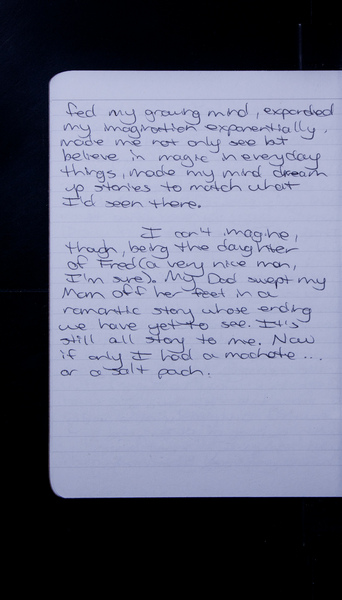 fed my growing mind, expanded
my imagination exponentially,
made me not only see but
believe in magic in everyday
things, made my mind dream
up stories to match what
I'd seen there.
I can't imagine,
though, being the daughter
of Fred (a very nice man,
I'm sure). My Dad swept my
Mom off her feet in a
romantic story whose ending
we have yet to see. It's
still all story to me. Now
if only I had a machete...
or a salt pach.